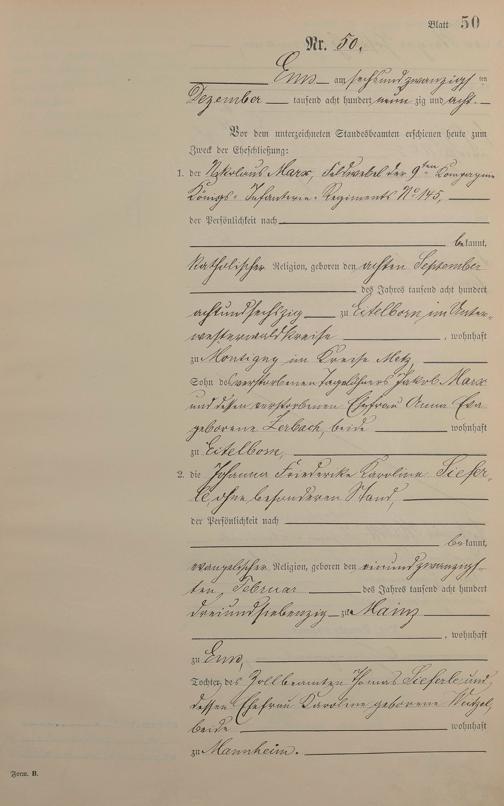 Blatt 50
Nr. 50.
Ems am sechsundzwanzigs ten
Dezember tausend acht hundert neun zig und acht.
Vor dem unterzeichneten Standesbeamten erschienen heute zum
Zweck der Eheschließung:
1. der Nikolaus Marx, Feldwebel der 9ten Kompagnie
Königs-Infanterie-Regiments No 145,
der Persönlichkeit nach
bekannt,
katholischer Religion, geboren den achten September
des Jahres tausend acht hundert
achtundsechszig zu Eitelborn, im Unter-
westerwaldkreise, wohnhaft
zu Montigny im Kreise Metz
Sohn des verstorbenen Tagelöhners Jakob Marx
und dessen verstorbenen Ehefrau Anna Eva
geborene Zerbach, beide wohnhaft
zu Eitelborn,
2. die Johanna Friederike Karoline Siefer-
le, ohne besonderen Stand,
der Persönlichkeit nach
bekannt,
evangelischer Religion, geboren den einundzwanzigs-
ten Februar des Jahres tausend acht hundert
dreiundsiebenzig zu Mainz
, wohnhaft
zu Ems,
Tochter des Zollbeamten Thomas Sieferle und
dessen Ehefrau Karoline geborene
beide wohnhaft
zu Mannheim.
Form. B.